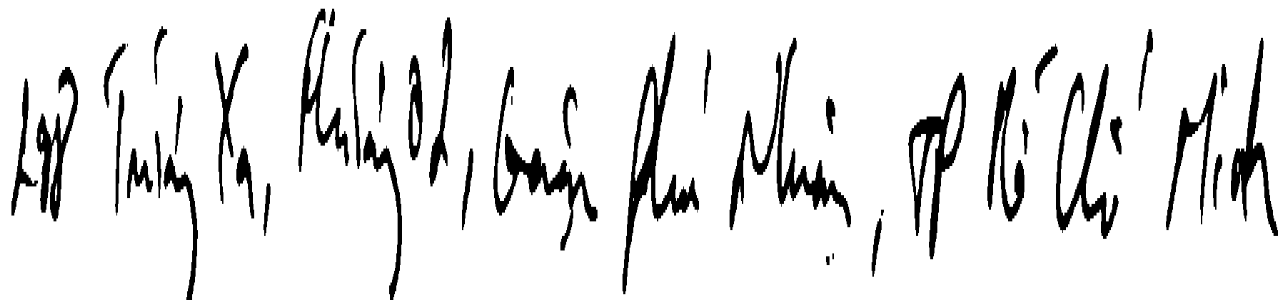 Trường Sa, Phường 02, Quận Phú Nhuận, TP Hồ Chí Minh